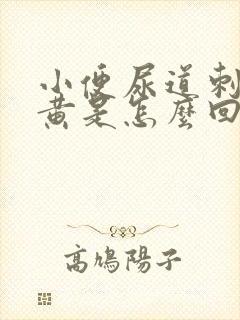 小便尿道刺
黄是怎麼回
高鳩陽子